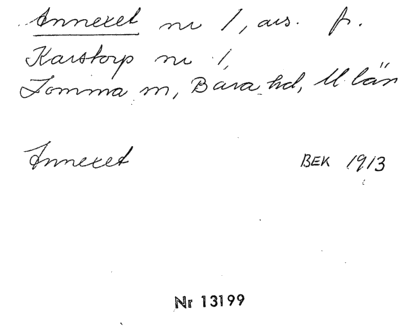 Annexet nr 1, avs. fr.
Karstorp nr 1,
Lomma m, Bara hd, M län
Annexet BEK 1913
Nr 13199